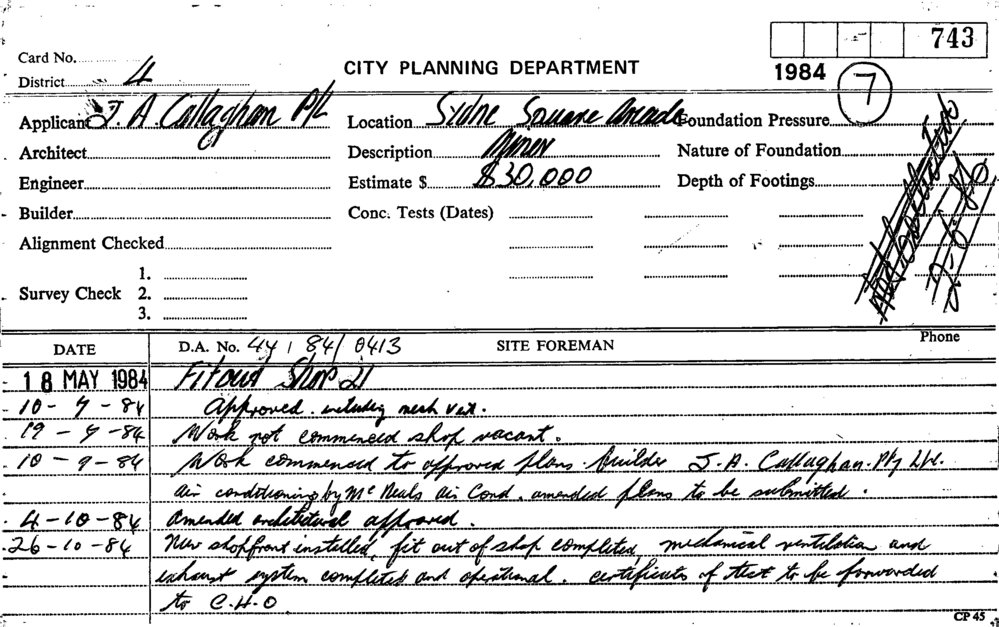 743
Card No.
1984 7
District 4
CITY PLANNING DEPARTMENT
Applicant J. A Callaghan P/L
Location Sydne Square Arcade
Foundation Pressure
Architect
Description Minor
Nature of Foundation
Engineer
Estimate $ $30,000
Depth of Footings
Builder
Conc. Tests (Dates)
Alignment Checked
Survey Check
1.
2.
3.
Phone
DATE D.A. No. 44 / 84 / 0413 SITE FOREMAN
18 MAY 1984 Fitout Shop 21
10-7-84 Approved including mech vent.
19-7-84 Work not commenced shop vacant.
10-9-84 Work commenced to approved plans. Builder J. A. Callaghan Pty Ltd.
air conditioning by Mc Neals Air Cond. amended plans to be submitted.
4-10-84 Amended architectural approved.
26-10-84 New shopfront installed, fit out of shop completed, mechanical ventilation and
exhaust system completed and operational. certificates of test to be forwarded
to C.H.O.
CP 45